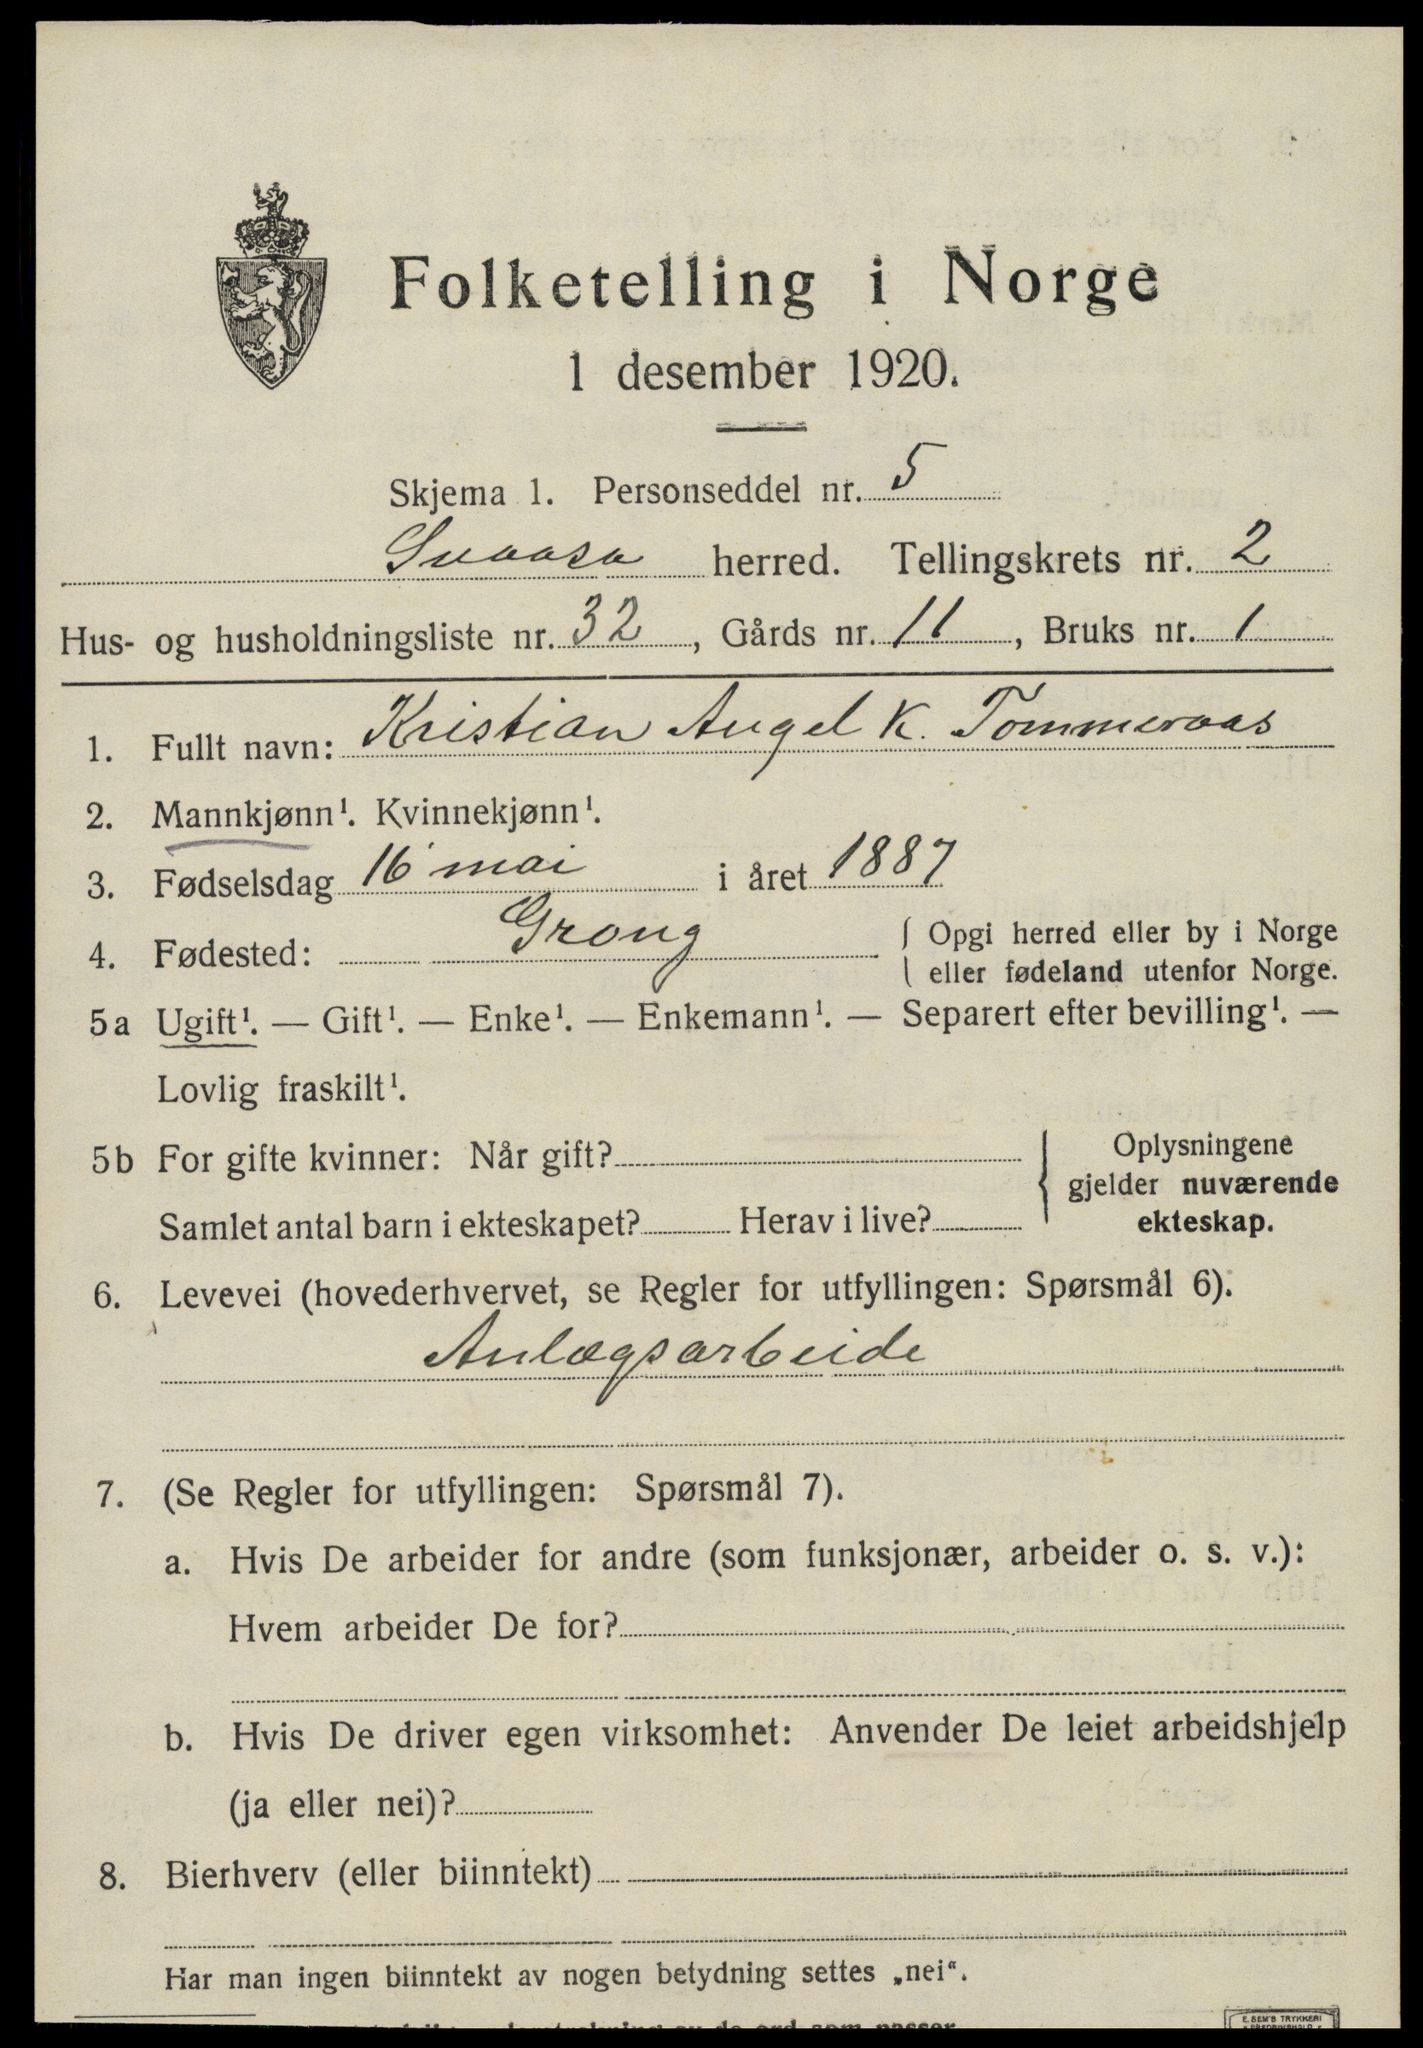 Folketelling i Norge
1 desember 1920.
Skjema 1. Personseddel nr. 5
Snaasa herred. Tellingskrets nr. 2
Hus- og husholdningsliste nr. 32, Gårds nr. 11, Bruks nr. 1
1. Fullt navn: Kristian Angel K. Tømmeraas
2. Mannkjønn¹. Kvinnekjønn¹.
3. Fødselsdag 16 mai i året 1887
4. Fødested: Grong { Opgi herred eller by i Norge
eller fødeland utenfor Norge.
5a Ugift¹. — Gift¹. — Enke¹. — Enkemann¹. — Separert efter bevilling¹. —
Lovlig fraskilt¹.
5b For gifte kvinner: Når gift? Oplysningene
gjelder nuværende
Samlet antal barn i ekteskapet? Herav i live? ekteskap.
6. Levevei (hovederhvervet, se Regler for utfyllingen: Spørsmål 6).
Anlægsarbeide
7. (Se Regler for utfyllingen: Spørsmål 7).
a. Hvis De arbeider for andre (som funksjonær, arbeider o. s. v.):
Hvem arbeider De for?
b. Hvis De driver egen virksomhet: Anvender De leiet arbeidshjelp
(ja eller nei)?
8. Bierhverv (eller biinntekt)
Har man ingen biinntekt av nogen betydning settes „nei“.
av de ord som passer
E. SEM'S TRYKKERI
FREDRIKSHALD